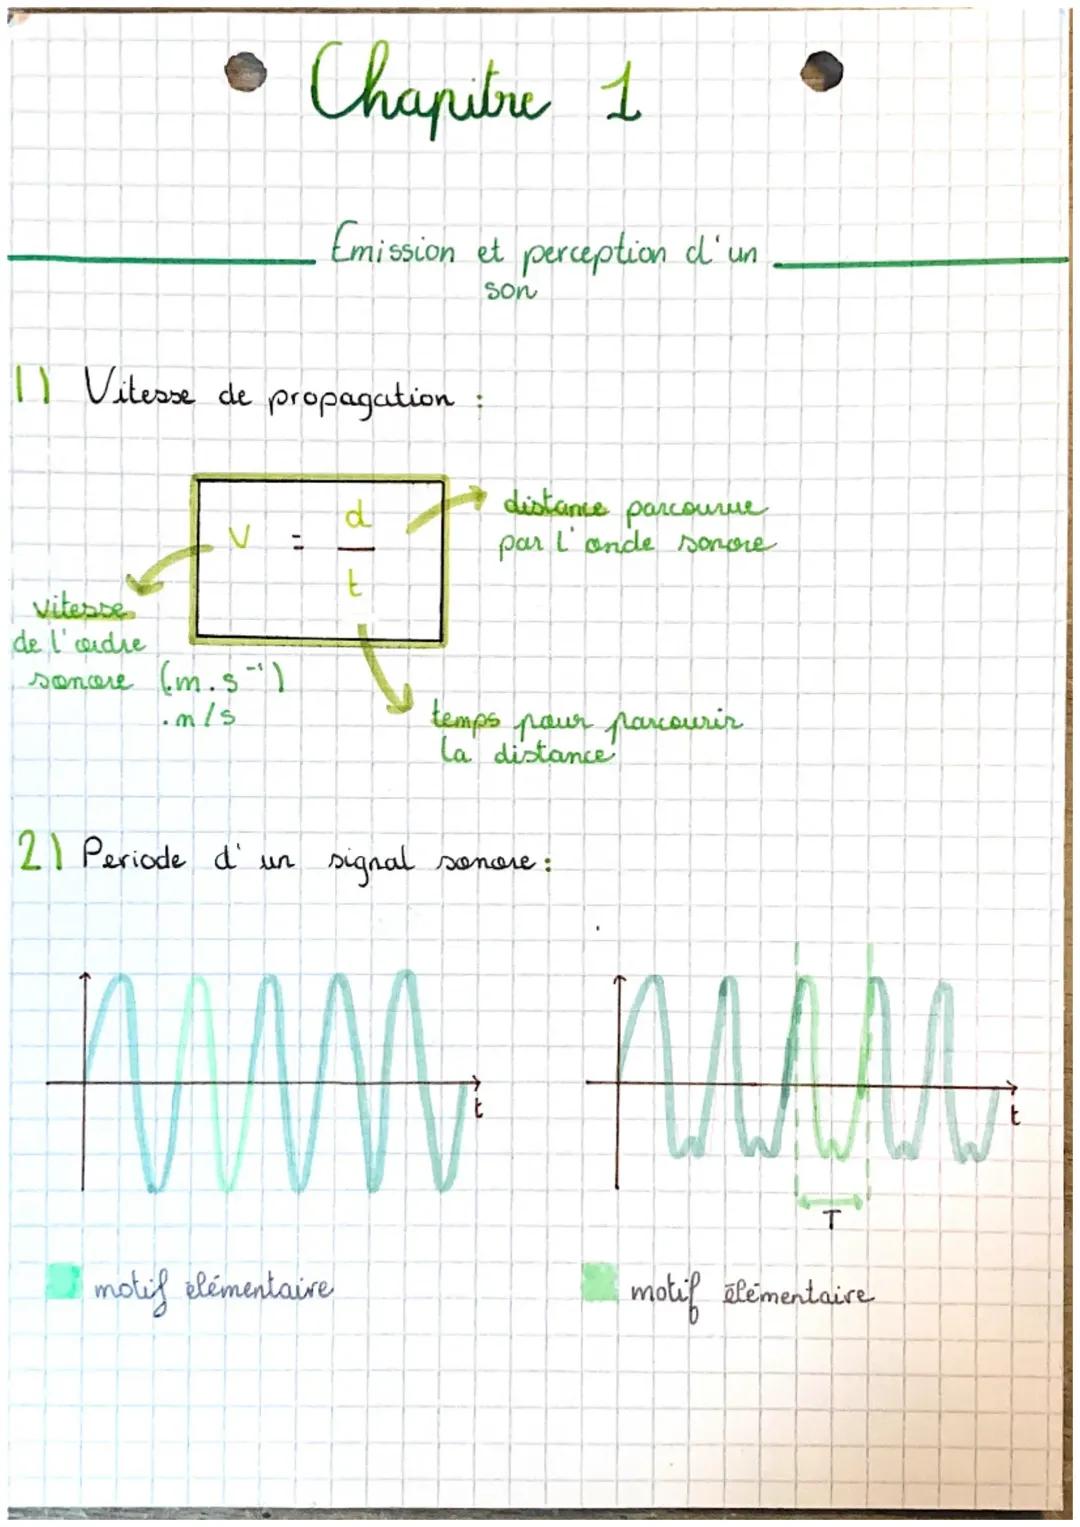 Chapitre 1
Emission et perception d'un
son
1) Vitesse de propagation :
v = d
t
distance parcourue
par l'onde sonore
vitesse
de l'ordre
sonore (m.s⁻¹)
.m/s
temps pour parcourir
la distance
2) Periode d'un signal sonore :
t
t
T
motif elémentaire
motif élémentaire